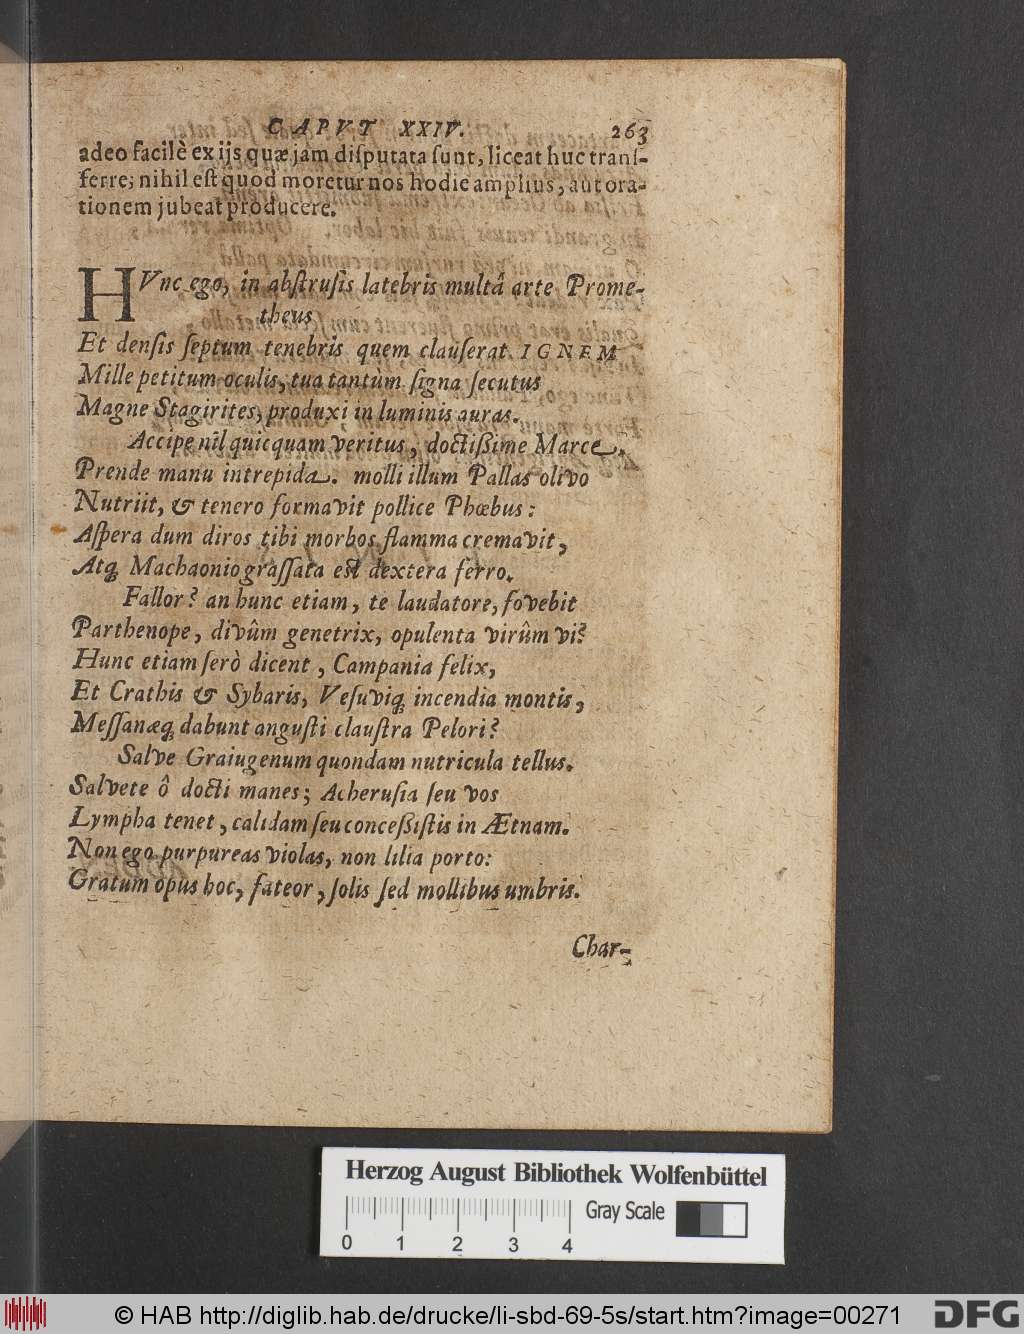 CAPVT XXIV. 263
adeo facilè ex ijs quæ jam diſputata ſunt, liceat huc tranſ-
ferre; nihil eſt quod moretur nos hodie amplius, aut ora-
tionem jubeat producere.
HVnc ego, in abſtruſis latebris multâ arte Prome-
theus
Et denſis ſeptum tenebris quem clauſerat IGNEM
Mille petitum oculis, tua tantùm ſigna ſecutus
Magne Stagirites, produxi in luminis auras.
Accipe nil quicquam veritus, doctißime Marce.
Prende manu intrepida. molli illum Pallas olivo
Nutriit, & tenero formavit pollice Phœbus:
Aſpera dum diros tibi morbos flamma cremavit,
Atq; Machaonio graſſata eſt dextera ferro.
Fallor? an hunc etiam, te laudatore, fovebit
Parthenope, divûm genetrix, opulenta virûm vi?
Hunc etiam ſerò dicent, Campania felix,
Et Crathis & Sybaris, Veſuviq; incendia montis,
Meſſanæq; dabunt anguſti clauſtra Pelori?
Salve Graiugenum quondam nutricula tellus.
Salvete ô docti manes; Acheruſia ſeu vos
Lympha tenet, calidam ſeu conceßiſtis in Ætnam.
Non ego purpureas violas, non lilia porto:
Gratum opus hoc, fateor, ſolis ſed mollibus umbris.
Char-
Herzog August Bibliothek Wolfenbüttel
Gray Scale
0 1 2 3 4
© HAB http://diglib.hab.de/drucke/li-sbd-69-5s/start.htm?image=00271
DFG